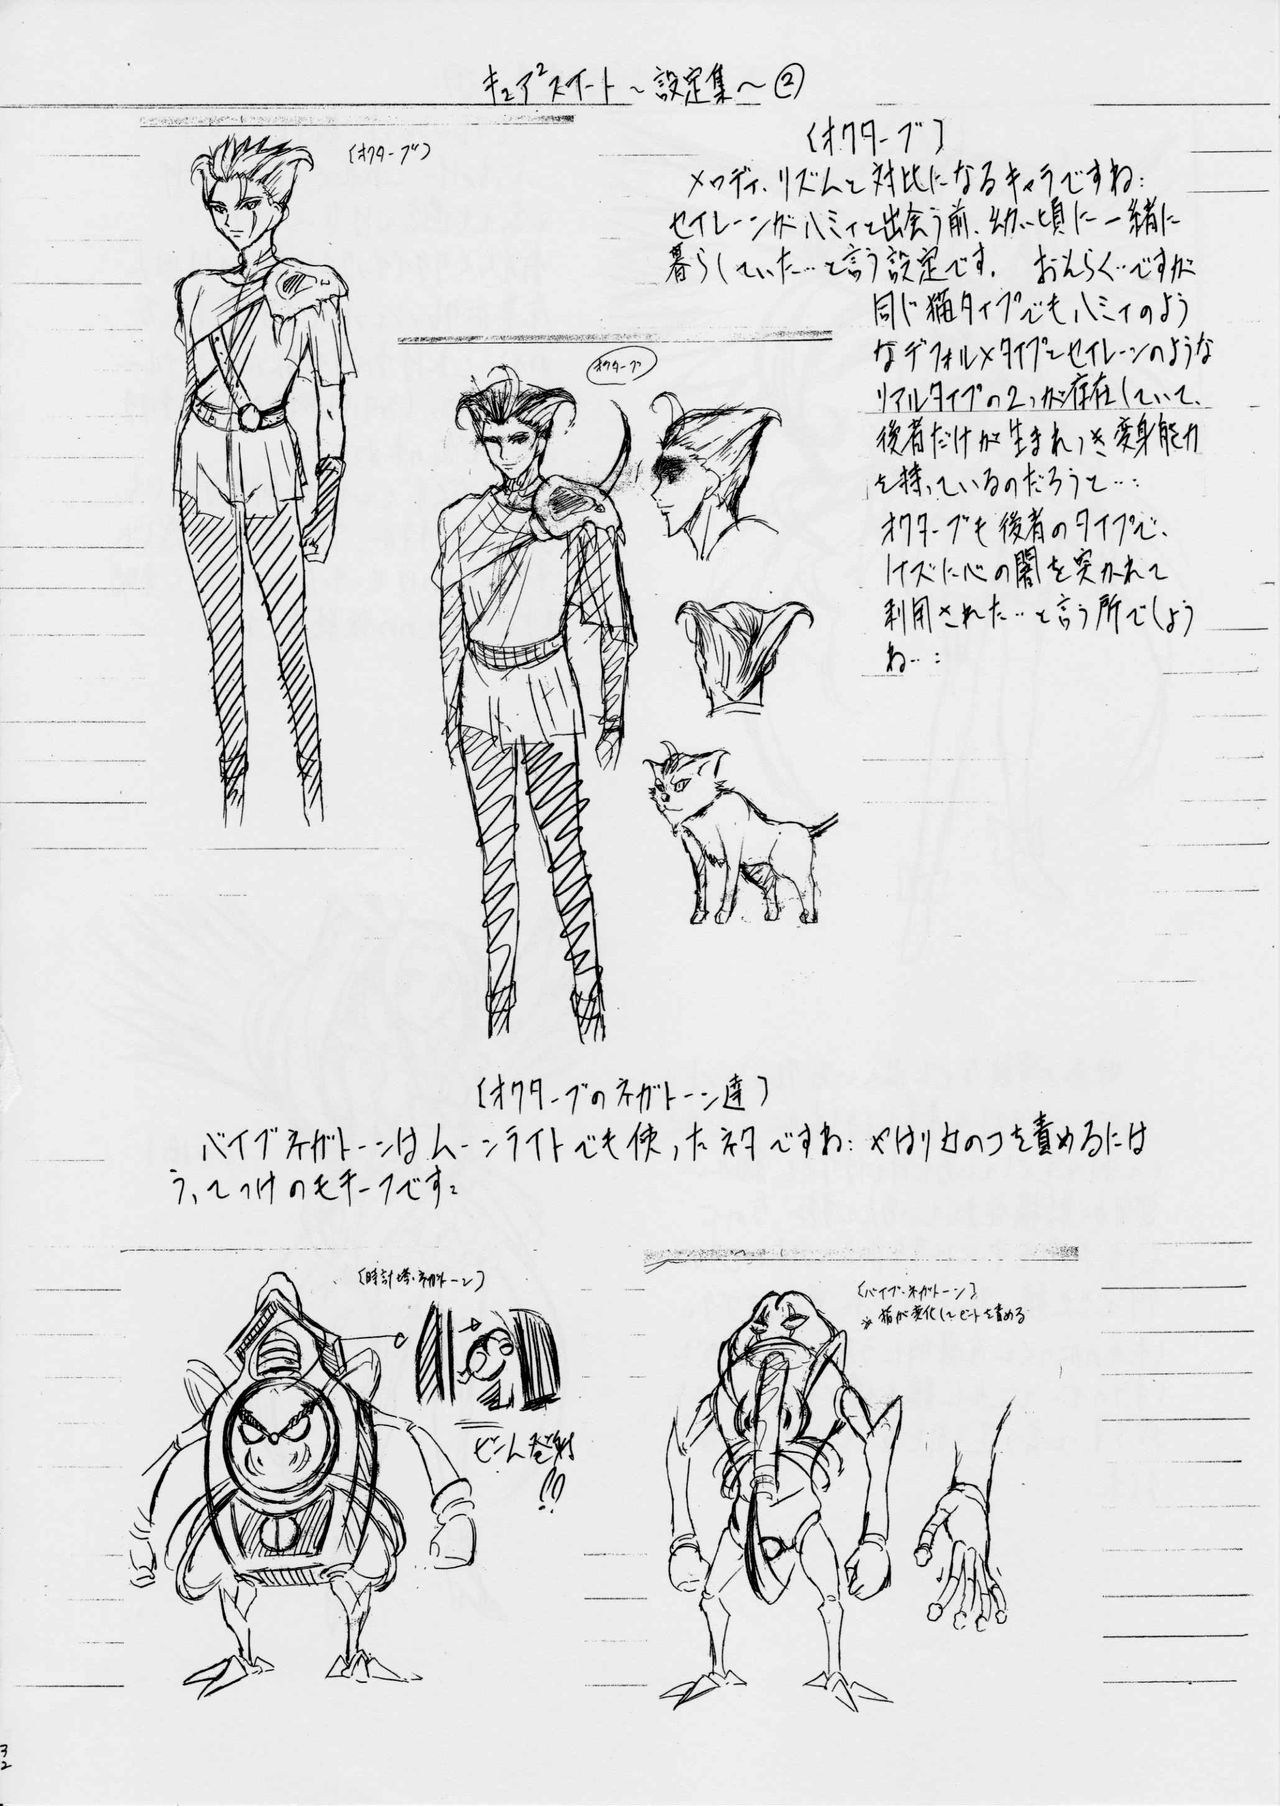 キュア²スイート～設定集～②
(オクターブ)
(オクターブ)
メロディ、リズムと対比になるキャラですね…
セイレーンがハミィと出会う前、幼い頃に一緒に
暮らしていた…と言う設定です。 おそらく…ですが
同じ猫タイプでもハミィのよう
なデフォルメタイプとセイレーンのような
リアルタイプの2つが存在していて、
後者だけが生まれつき変身能力
を持っているのだろうと…
オクターブも後者のタイプで、
ノイズに心の闇を突かれて
利用された…と言う所でしよう
ね…
オクターブ
(オクターブのネガトーン達)
バイブネガトーンはムーンライトでも使ったネタですね… やはり女のコを責めるには
うってつけのモチーフです…
(時計塔・ネガトーン)
ビーム発射!!
(バイブ・ネガトーン)
※猫が変化してビートを責める
32